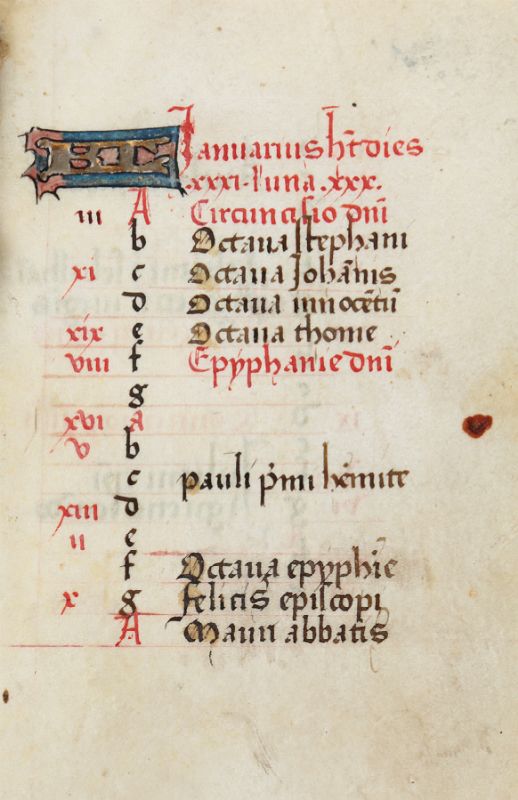 KL Januarius ht dies
.xxxi. luna .xxx.
iii A Circuncisio dni
b Octava stephani
xi c Octava Johanis
d Octava innocetu
xix e Octava thome
viii f Epyphanie dni
g
xvi a
v b
c pauli pmi hmite
xiii d
ii e
f Octava epyphie
x g felicis episcopi
A Mauri abbatis